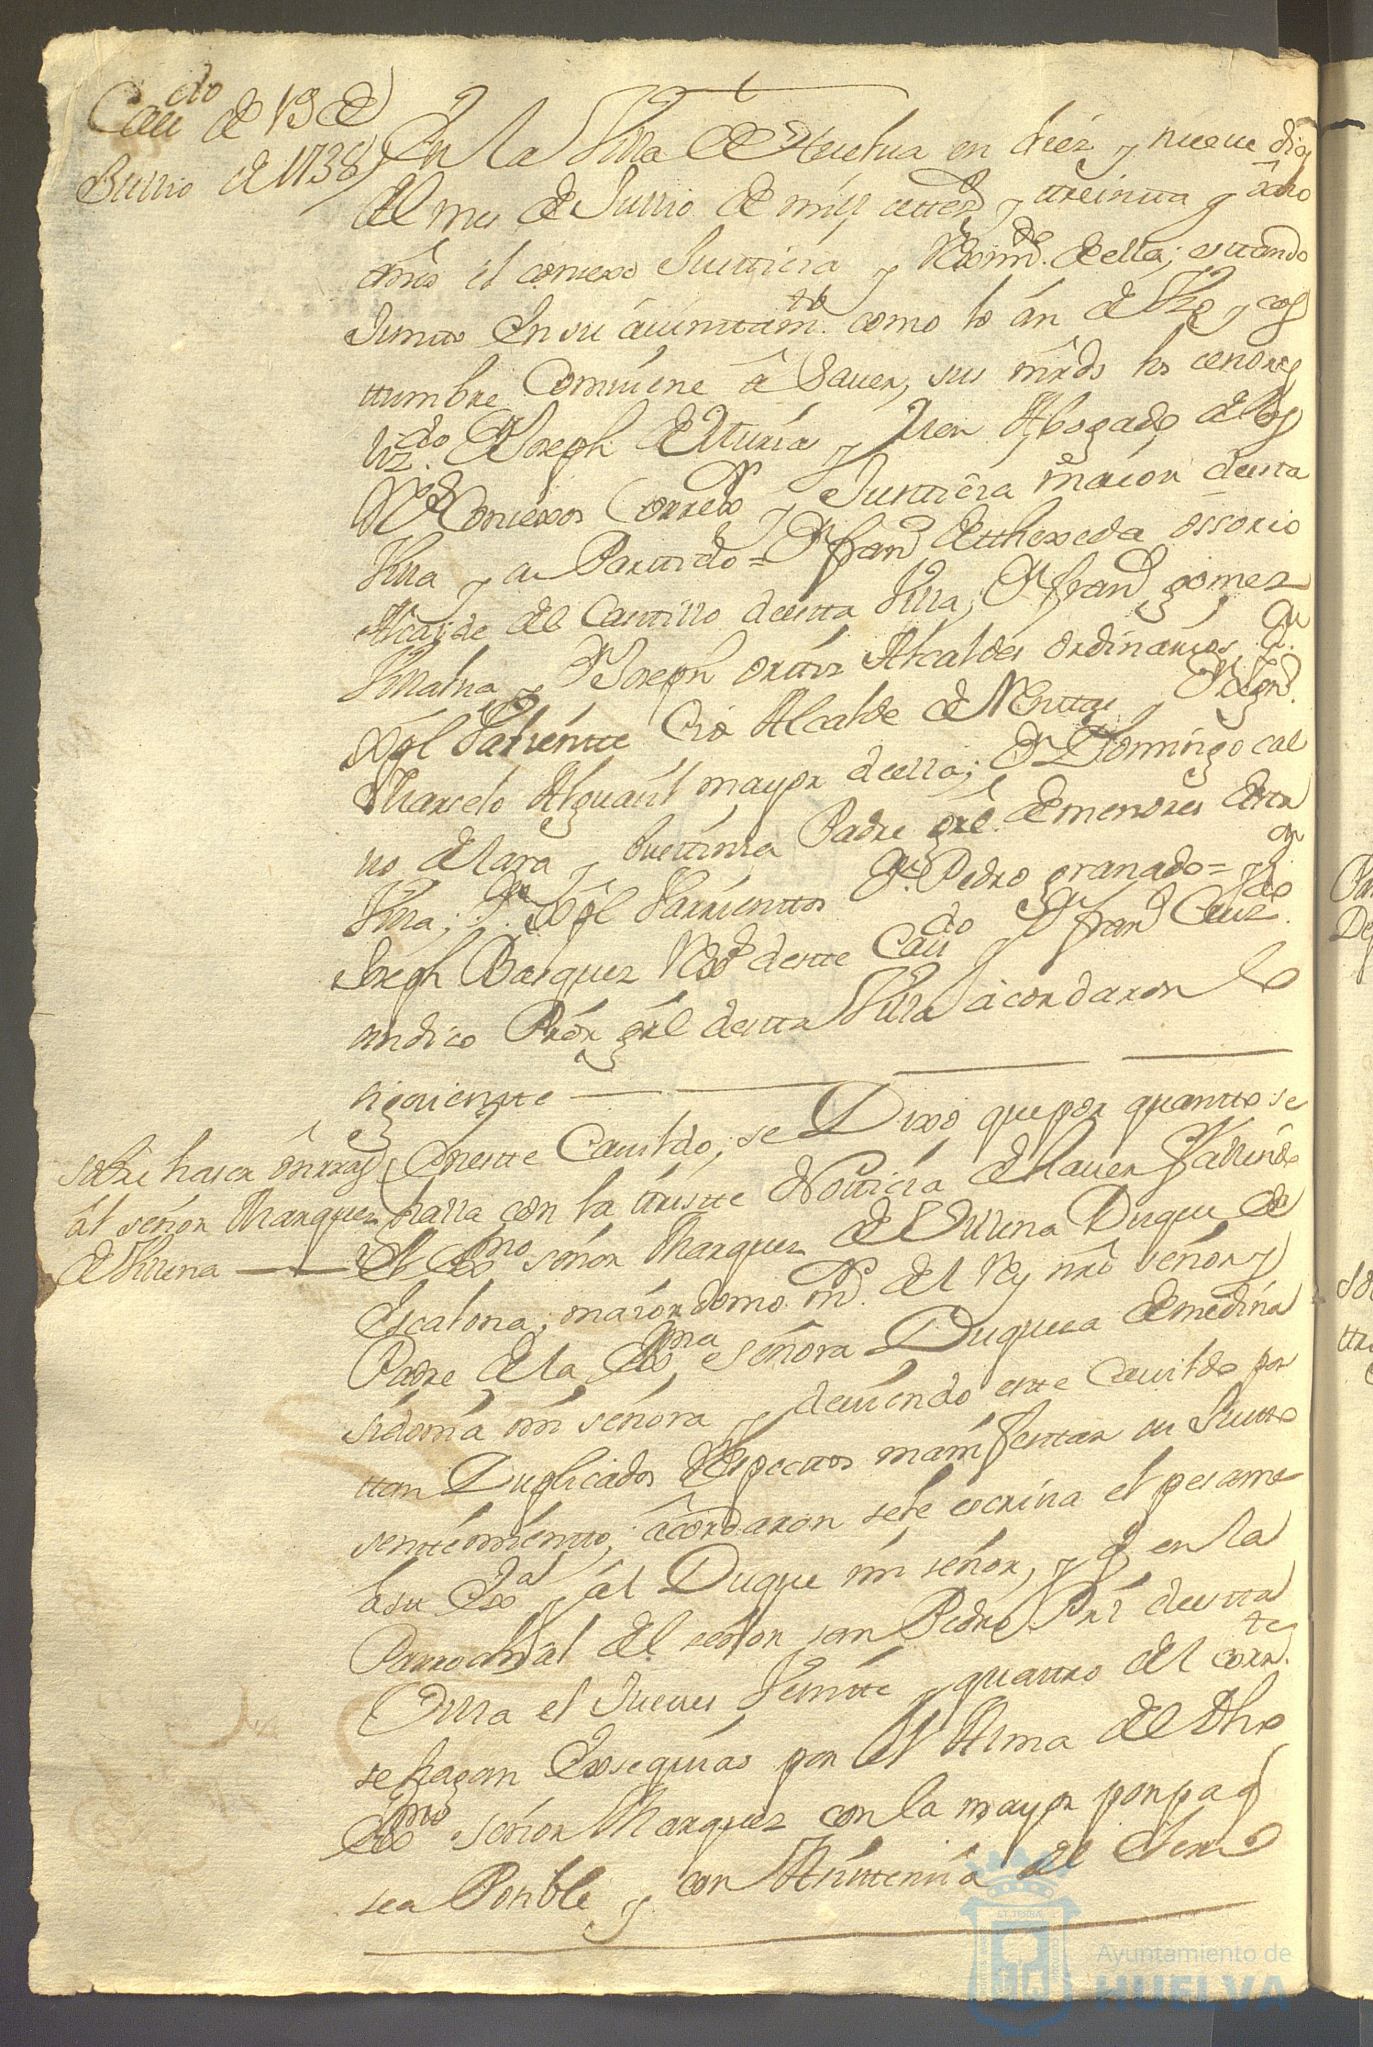 Cau^do de 19 de
Jullio de 1738
En la Villa de Huelua en diez y nueue dias
del mes de Jullio de mill settez^s y treintta y ocho
años el consexo Justticia y Rexim^to de ella; esttando
Juntto en su auinttam^to como lo an de Vso y cos
ttumbre Comuiene â Sauer, sus mrds los cenores
liz^do D^n Joseph de Atturia y Xuen Abogado de los
R^s Consexos Correx^or y Justticia maior destta
Villa y su Parttido = D^n fran^co de ttexeda ossorio
Alcaide del Casttillo destta Villa; D^n fran^co gomez
Villalua y D^n Joseph ortiz Alcaldes ordinarios, D^n
Xpl Valientte Alcalde de Renttas y D^n
Marcelo Alguasil mayor de ella; D^n Domingo cal
uo de lara y Padre grl de menores destta
Villa; D^n Xpl Barrienttos D^n Pedro granado = y D^n
Joseph Basquez Rex^s destte Cau^do y D^n fran^co Cruz^do
sindico Pror grl destta Villa acordaron lo
siguientte
sobre haser onrras
al señor Marques
de Villena
En estte Cauildo, se Dixo que por quantto se
halla con la triste Notticia de hauer fallesido
el Ex^mo señor Marques de Villena Duque de
Escalona; maiordomo m^or del Rey nro señor y
Padre de la Ex^ma señora Duquesa de medina
sidonia mi señora y deuiendo estte Cauildo por
ttan Duplicados Respecttos manifesttar su Justto
senttimientto; acordaron se le escriua el pesame
a su Ex^a y al Duque mi señor, y q en la
Parrochial del señor san Pedro destta
Villa el Jueues Veintte y quattro del corr^te
se hagan Exsequias por el Alma del dho
Ex^mo señor Marques con la mayor ponpa q
sea Posible y con Asistencia del Clero
Ayuntamiento de
HUELVA